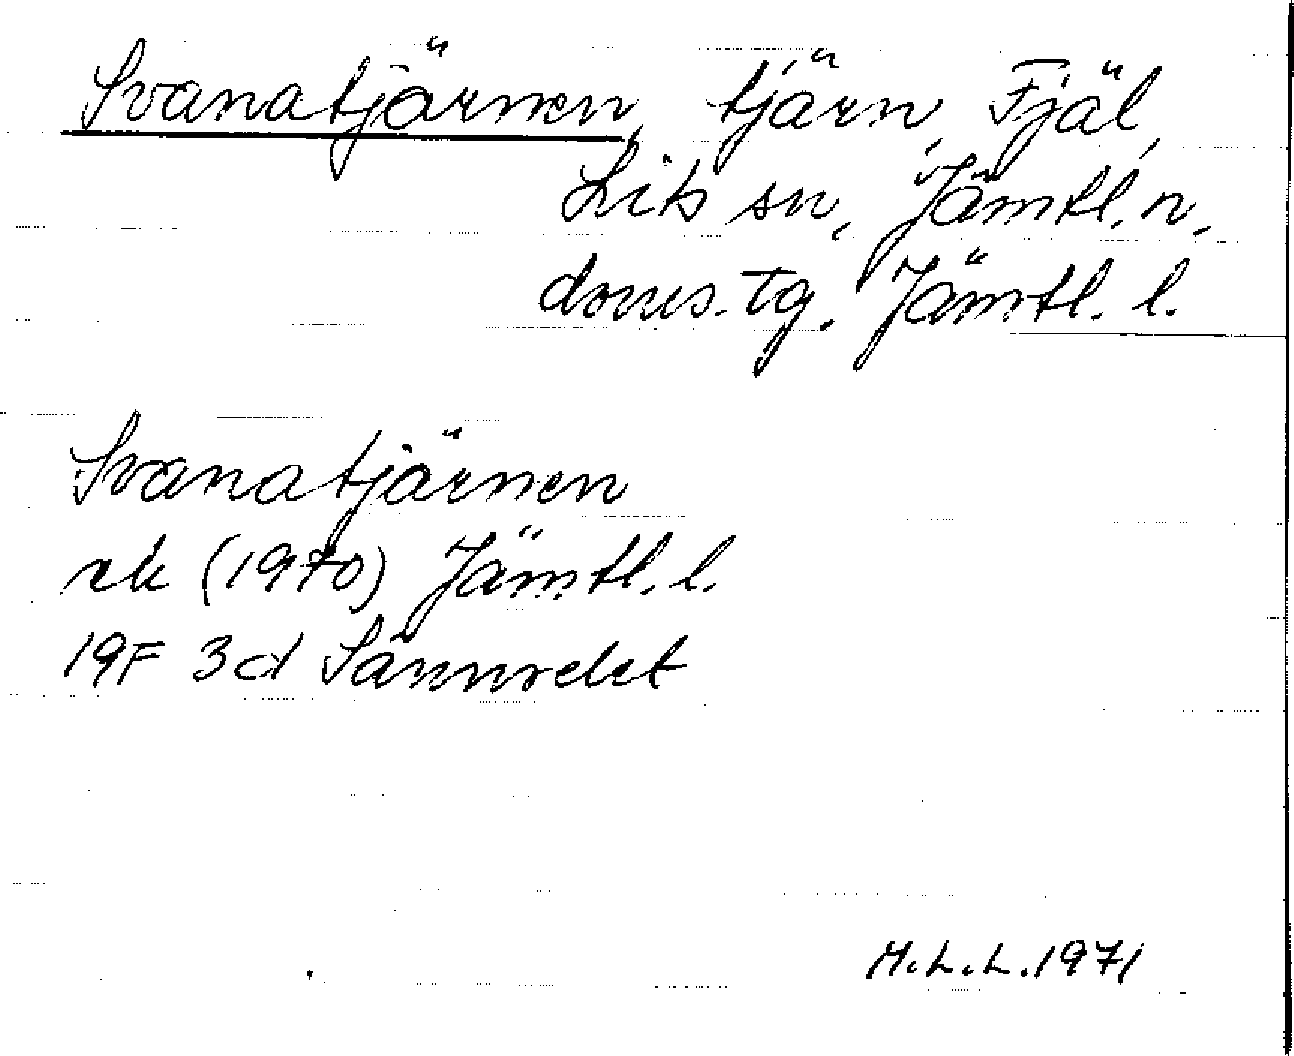 Svanatjärnen, tjärn, Fjäl,
Lits sn, Jämtl. n.
doms.tg. Jämtl. l.
Svanatjärnen
rk (1970) Jämtl. l.
19F 3d Sånnvdet
M.L.L. 1971